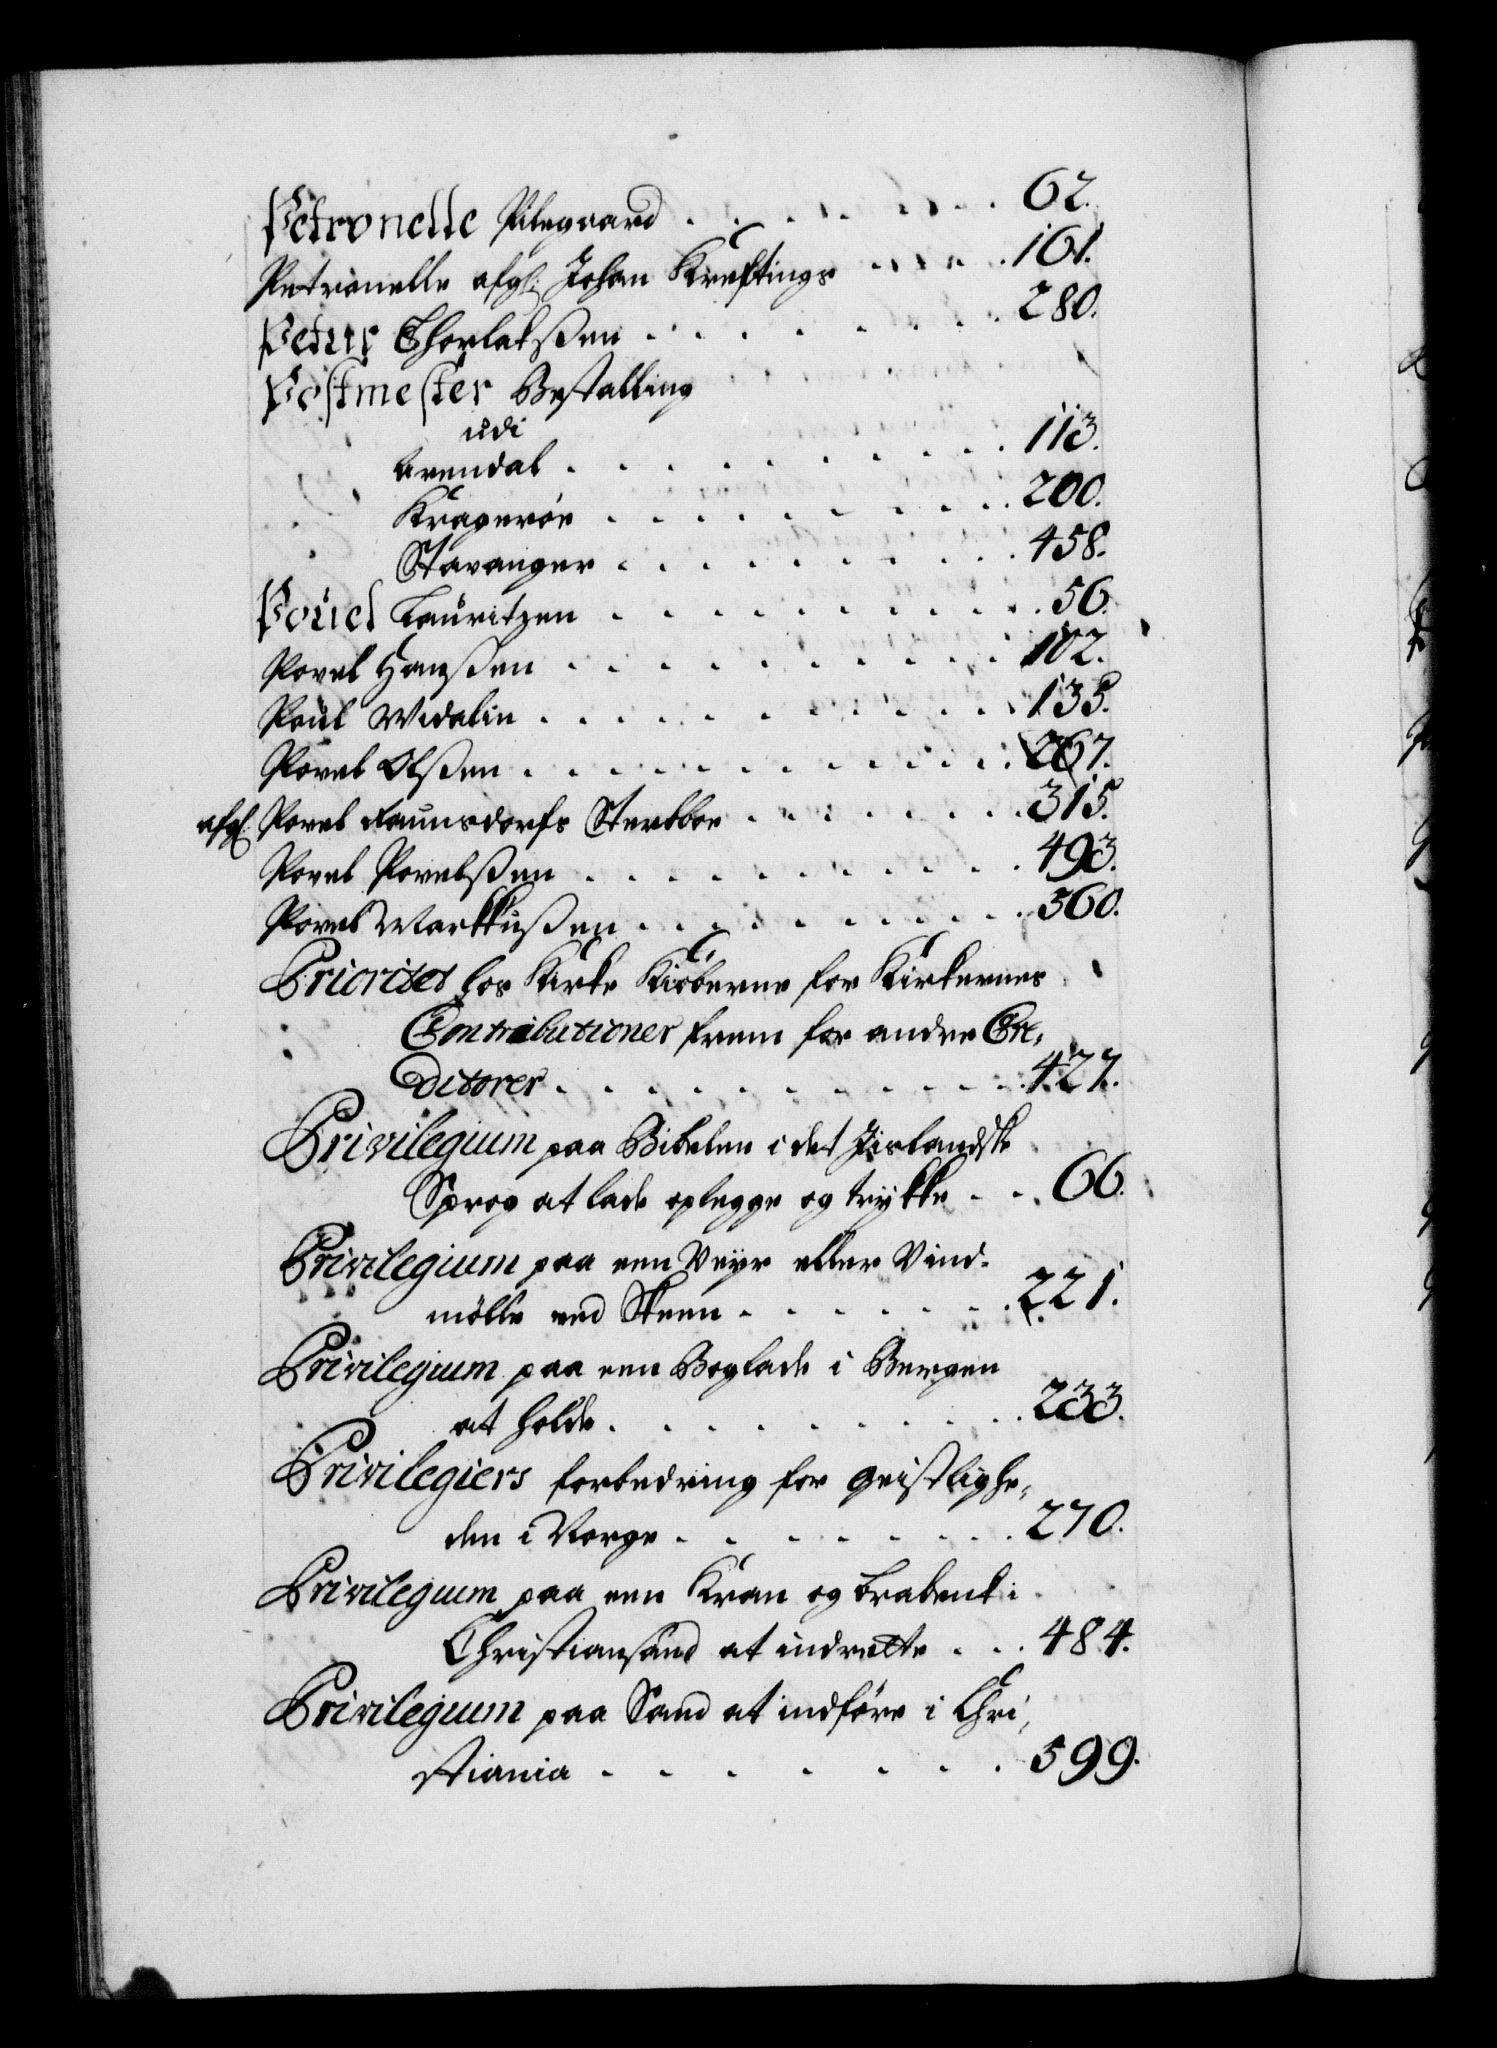 Petronelle Pilegaard . . . . . . . . 62.
Petronelle afg: Johan Kreftings . . . . 161.
Petur Thorlaksßen . . . . . . . . 280.
Postmester Bestalling
udi
Arendal . . . . . . . . . . 113.
Kragerøe . . . . . . . . . 200.
Stavanger . . . . . . . . . 458.
Pouel Lauritzen . . . . . . . . . . 56.
Povel Hanßen . . . . . . . . . . 102.
Poul Widalin . . . . . . . . . . . 135.
Povel Olßen . . . . . . . . . . . 267.
afg: Povel Paunsdorfs Sterbboe . . . . . . . 315.
Povel Povelßen . . . . . . . . . . 493.
Povel Markkußen . . . . . . . . . 560.
Prioritet hos Kirke Kiøberne for Kirkernes
Contributioner frem for andre Cre,
ditorer . . . . . . . . . . . 427.
Privilegium paa Bibelen i det Jislandske
Sprog at lade oplegge og trykke . . . 66.
Privilegium paa een Veyr eller Vind-
mølle ved Skeen . . . . . . . 221.
Privilegium paa een Boglade i Bergen
at holde . . . . . . . . . . 233.
Privilegiers forbedring for Geistlighe,
den i Norge . . . . . . . . 270.
Privilegium paa een Kran og Bradenk i
Christiansand at indrætte . . . 484.
Privilegium paa Sand at indføre i Chri,
stiania . . . . . . . . 599.